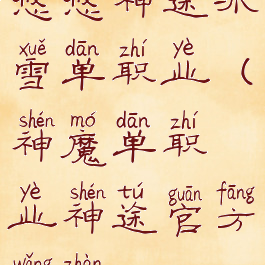 神途
xuě dān zhí yè
雪单职业(
shén mó dān zhí
神魔单职
yè shén tú guān fāng
业神途官方
wǎng zhàn